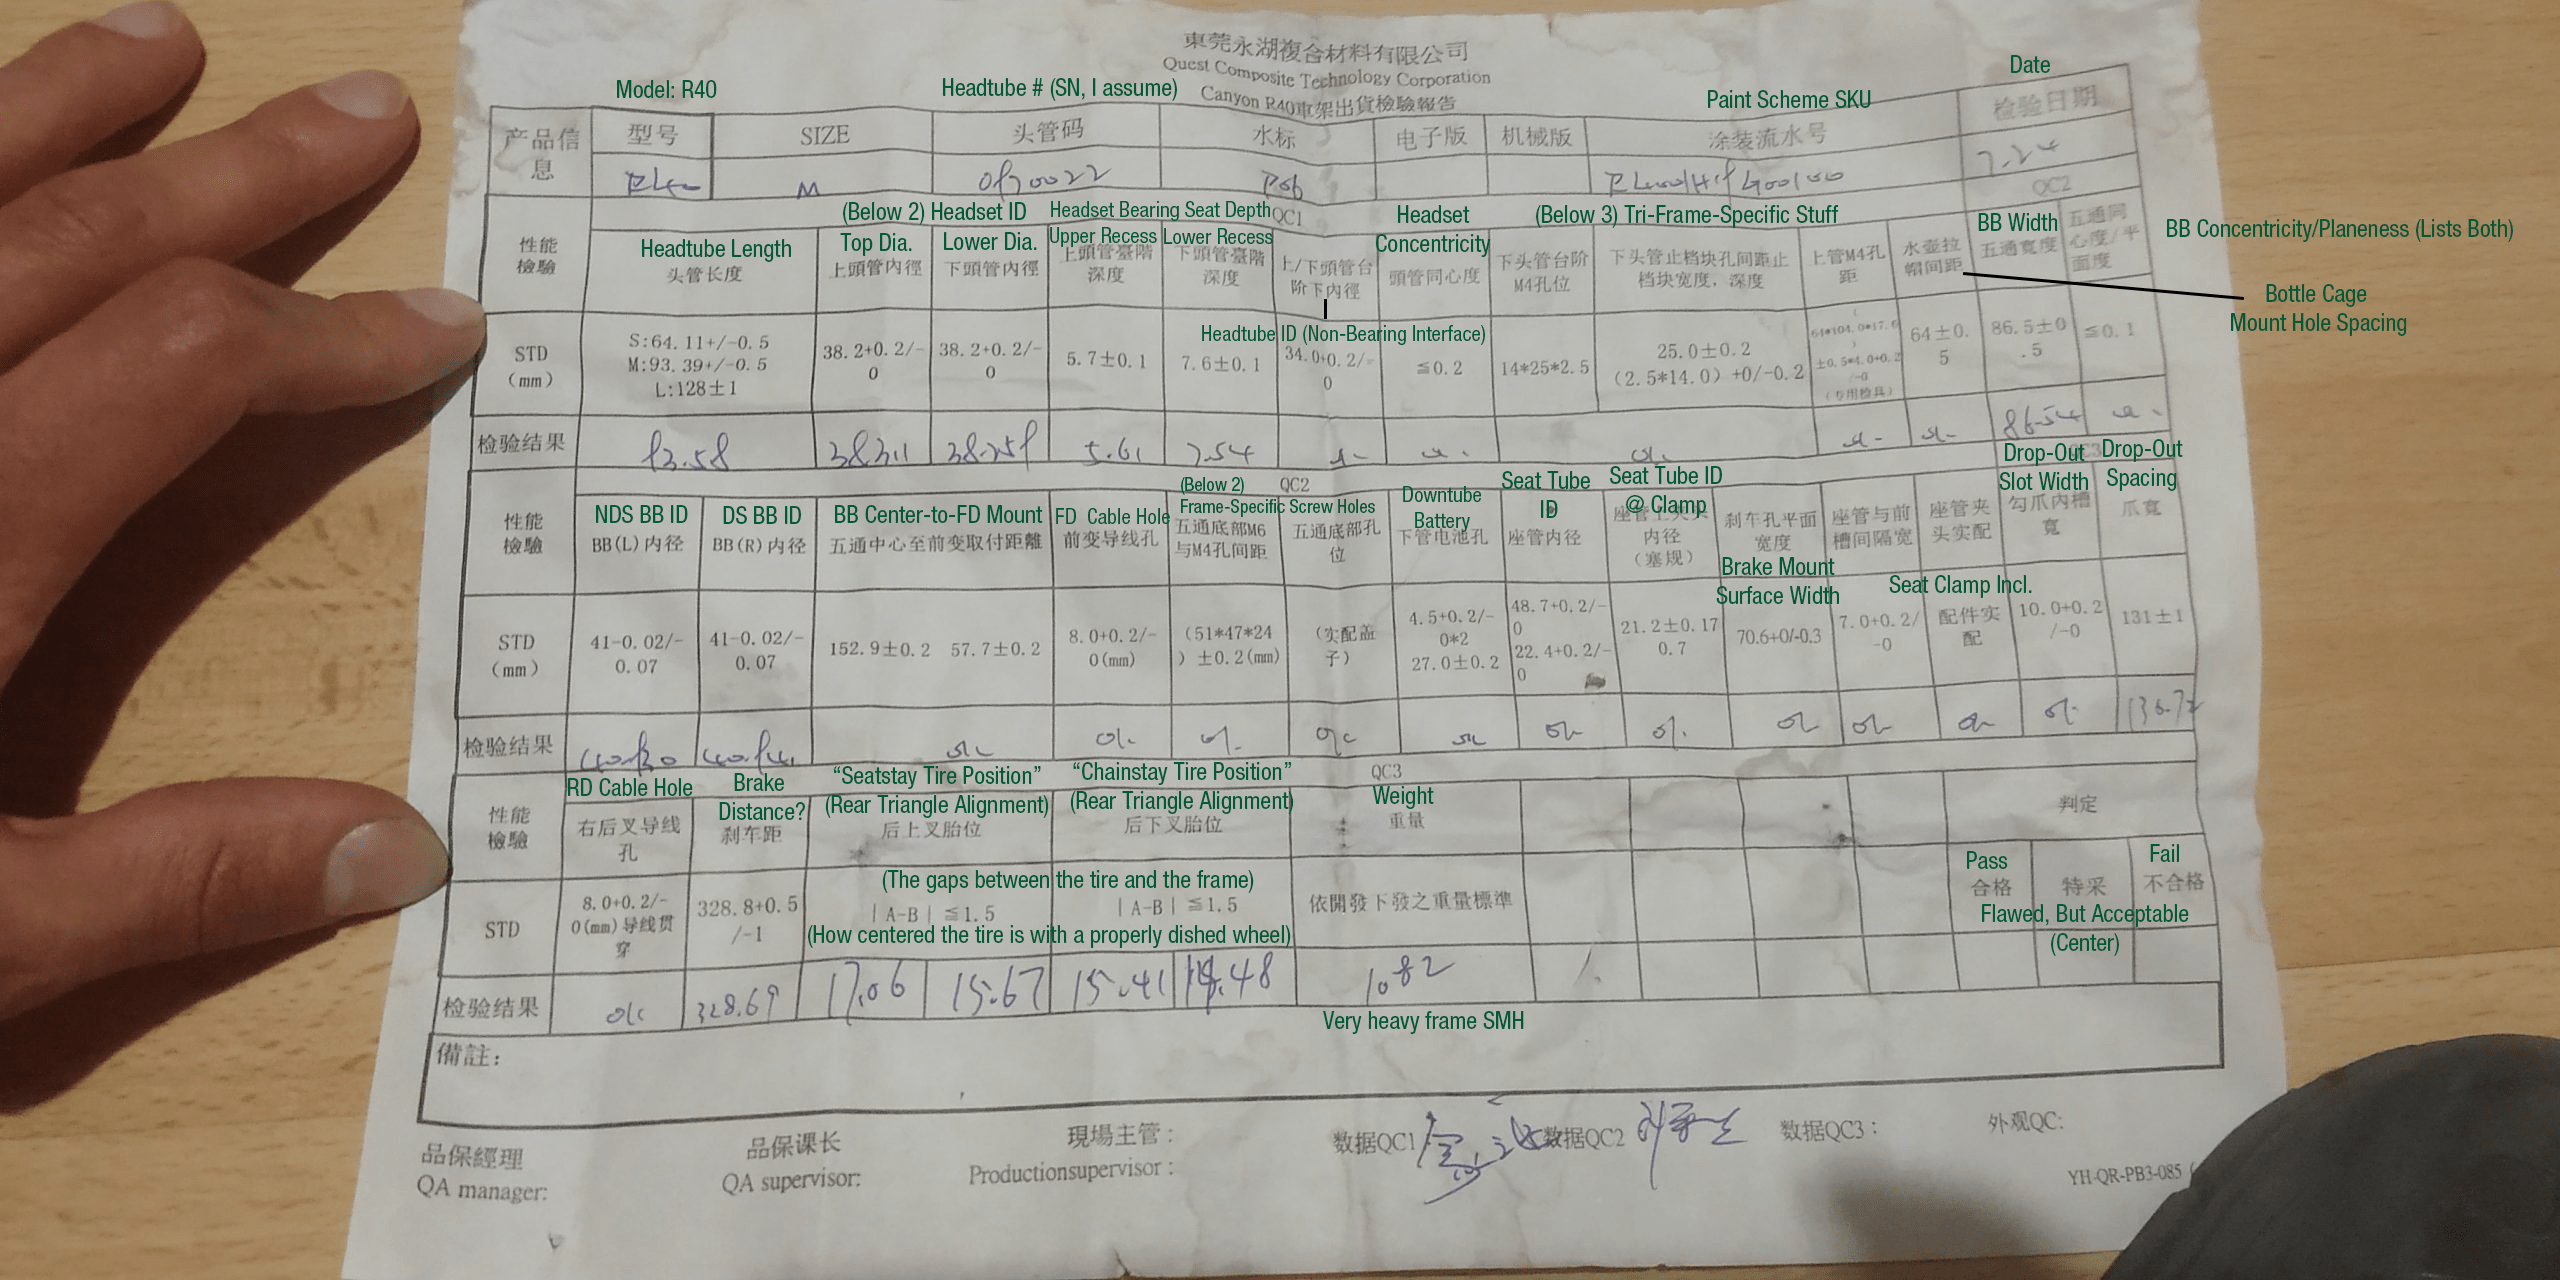 東莞永湖複合材料有限公司
Quest Composite Technology Corporation
Canyon R40車架出貨檢驗報告
Model: R40
Headtube # (SN, I assume)
Paint Scheme SKU
Date
产品信息
型号
SIZE
头管码
水标
电子版
机械版
涂装流水号
检验日期
M
P06
7.24
(Below 2) Headset ID
Headset Bearing Seat Depth
QC1
Headset
(Below 3) Tri-Frame-Specific Stuff
QC2
性能檢驗
Headtube Length
头管长度
Top Dia.
上頭管內徑
Lower Dia.
下頭管內徑
Upper Recess
上頭管臺階深度
Lower Recess
下頭管臺階深度
上/下頭管台阶下内徑
Concentricity
頭管同心度
下头管台阶M4孔位
下头管止档块孔间距止档块宽度，深度
上管M4孔距
水壶拉帽间距
BB Width
五通寬度
五通同心度/平面度
BB Concentricity/Planeness (Lists Both)
Bottle Cage
Mount Hole Spacing
Headtube ID (Non-Bearing Interface)
STD
(mm)
S:64.11+/-0.5
M:93.39+/-0.5
L:128±1
38.2+0.2/-0
38.2+0.2/-0
5.7±0.1
7.6±0.1
34.0+0.2/-0
≦0.2
14*25*2.5
25.0±0.2
(2.5*14.0) +0/-0.2
64*104.0*17.6
±0.5*4.0+0.2/-0
(专用检具)
64±0.5
86.5±0.5
≦0.1
检验结果
93.58
5.61
7.54
86.54
QC2
QC3
性能檢驗
NDS BB ID
BB(L)内径
DS BB ID
BB(R)内径
BB Center-to-FD Mount
五通中心至前变取付距離
FD Cable Hole
前变导线孔
(Below 2)
Frame-Specific Screw Holes
五通底部M6与M4孔间距
五通底部孔位
Downtube
Battery
下管电池孔
Seat Tube
ID
座管内径
Seat Tube ID
@ Clamp
内径
(塞规)
刹车孔平面宽度
Brake Mount
Surface Width
座管与前槽间隔宽
座管夹头实配
Seat Clamp Incl.
Drop-Out
Slot Width
勾爪内槽寬
Drop-Out
Spacing
爪寬
STD
(mm)
41-0.02/-0.07
41-0.02/-0.07
152.9±0.2 57.7±0.2
8.0+0.2/-0(mm)
(51*47*24) ±0.2(mm)
(实配盖子)
4.5+0.2/-0*2
27.0±0.2
48.7+0.2/-0
22.4+0.2/-0
21.2±0.17
0.7
70.6+0/-0.3
7.0+0.2/-0
配件实配
10.0+0.2/-0
131±1
检验结果
40.94
QC3
性能檢驗
RD Cable Hole
右后叉导线孔
Brake
Distance?
刹车距
“Seatstay Tire Position”
(Rear Triangle Alignment)
后上叉胎位
“Chainstay Tire Position”
(Rear Triangle Alignment)
后下叉胎位
Weight
重量
判定
STD
8.0+0.2/-0(mm)导线贯穿
328.8+0.5/-1
(The gaps between the tire and the frame)
|A-B| ≦1.5
|A-B| ≦1.5
(How centered the tire is with a properly dished wheel)
依開發下發之重量標準
Pass
合格
特采
Fail
不合格
Flawed, But Acceptable
(Center)
检验结果
ok
328.69
17.06
15.67
15.41
14.48
1.082
Very heavy frame SMH
備註:
品保經理
QA manager:
品保课长
QA supervisor:
現場主管:
Productionsupervisor:
数据QC1
数据QC2
数据QC3:
外观QC:
YH-QR-PB3-085